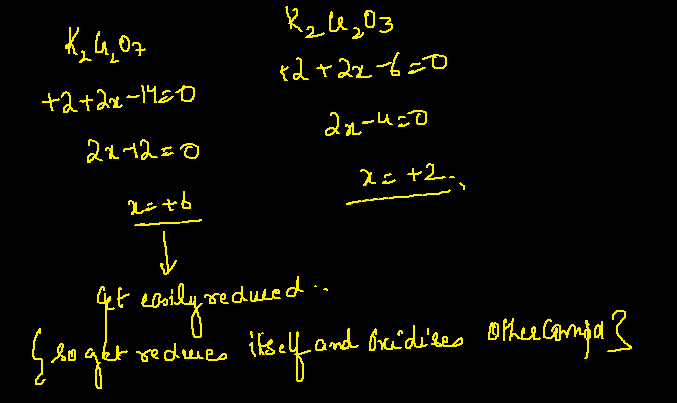 K₂Cr₂O₇
+2+2x-14=0
2x-12=0
x=+6
K₂Cr₂O₃
+2+2x-6=0
2x-4=0
x=+2
get easily reduced..
{so get reduces itself and oxidises other compd}